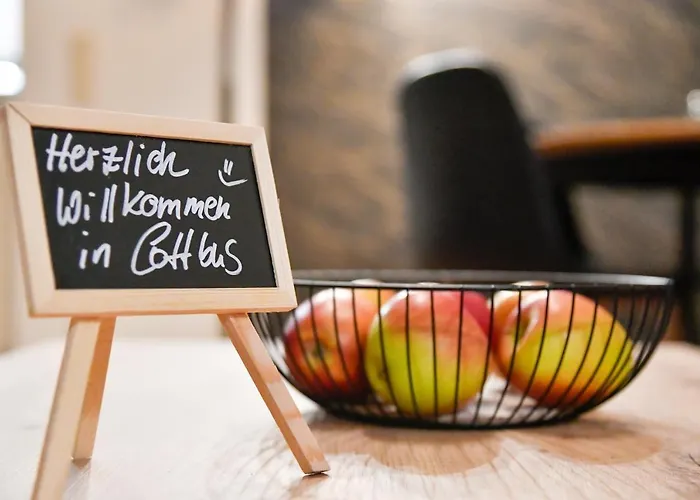 Herzlich
Willkommen
in Cottbus